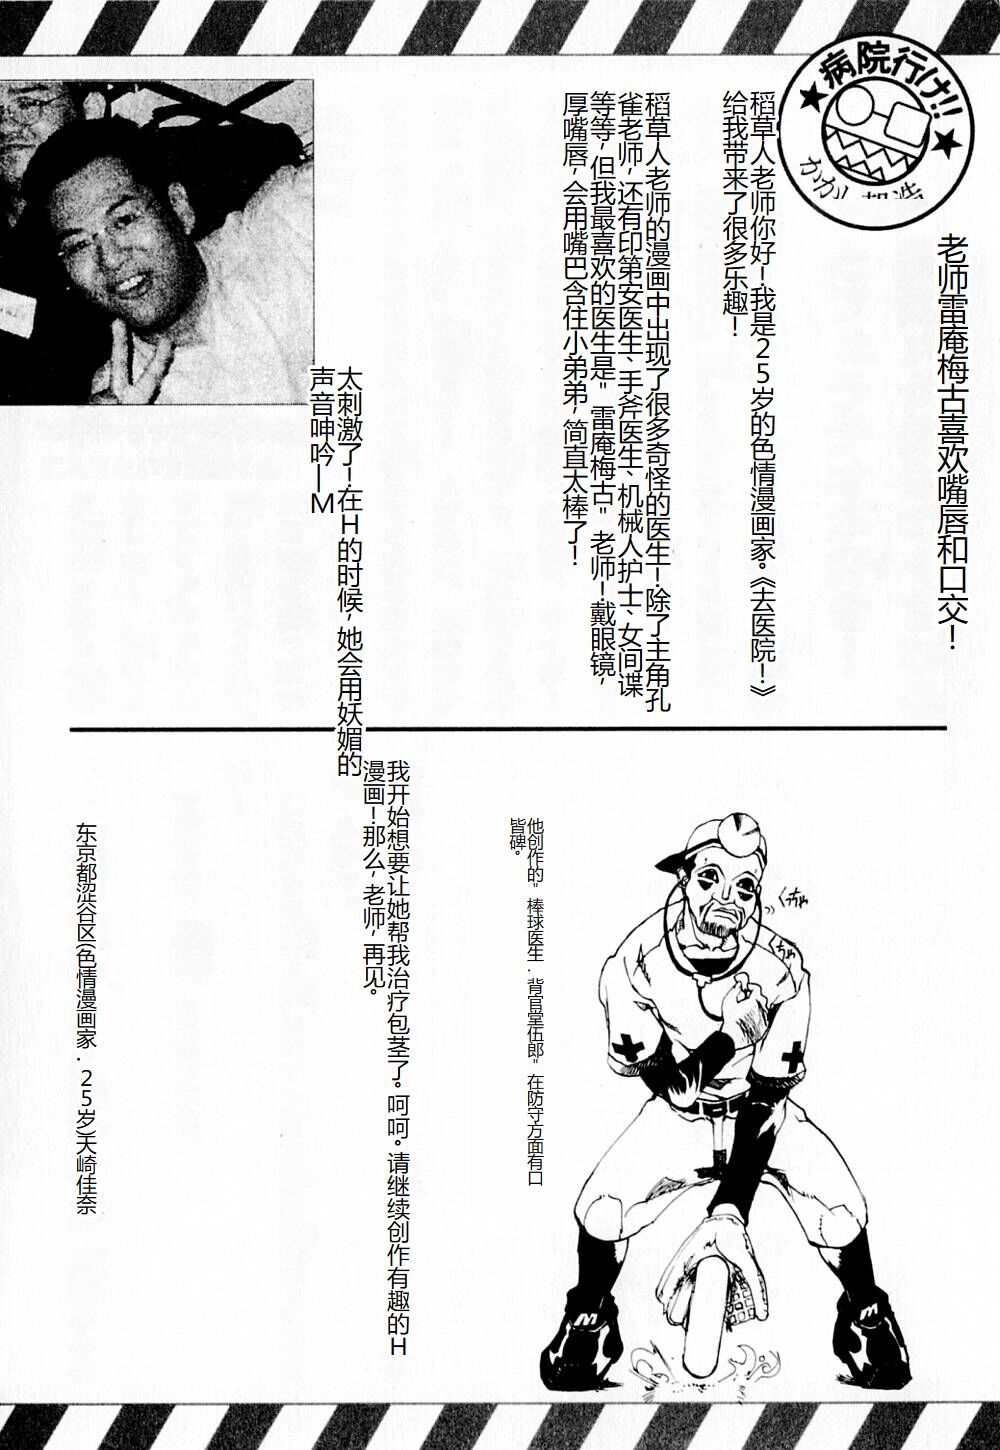 病院行け!!
老师雷庵梅古喜欢嘴唇和口交！
稻草人老师你好！我是25岁的色情漫画家。《去医院！》
给我带来了很多乐趣！
稻草人老师的漫画中出现了很多奇怪的医生！除了主角孔
雀老师，还有印第安医生、手斧医生、机械人护士、女间谍
等等，但我最喜欢的医生是"雷庵梅古"老师！戴眼镜，
厚嘴唇，会用嘴巴含住小弟弟，简直太棒了！
太刺激了！在H的时候，她会用妖媚的
声音呻吟—M
我开始想要让她帮我治疗包茎了。呵呵。请继续创作有趣的H
漫画！那么，老师，再见。
他创作的"棒球医生.背官堂伍郎"在防守方面有口
皆碑。
くちゃ
くちゃ
东京都涩谷区(色情漫画家.25岁)天崎佳奈